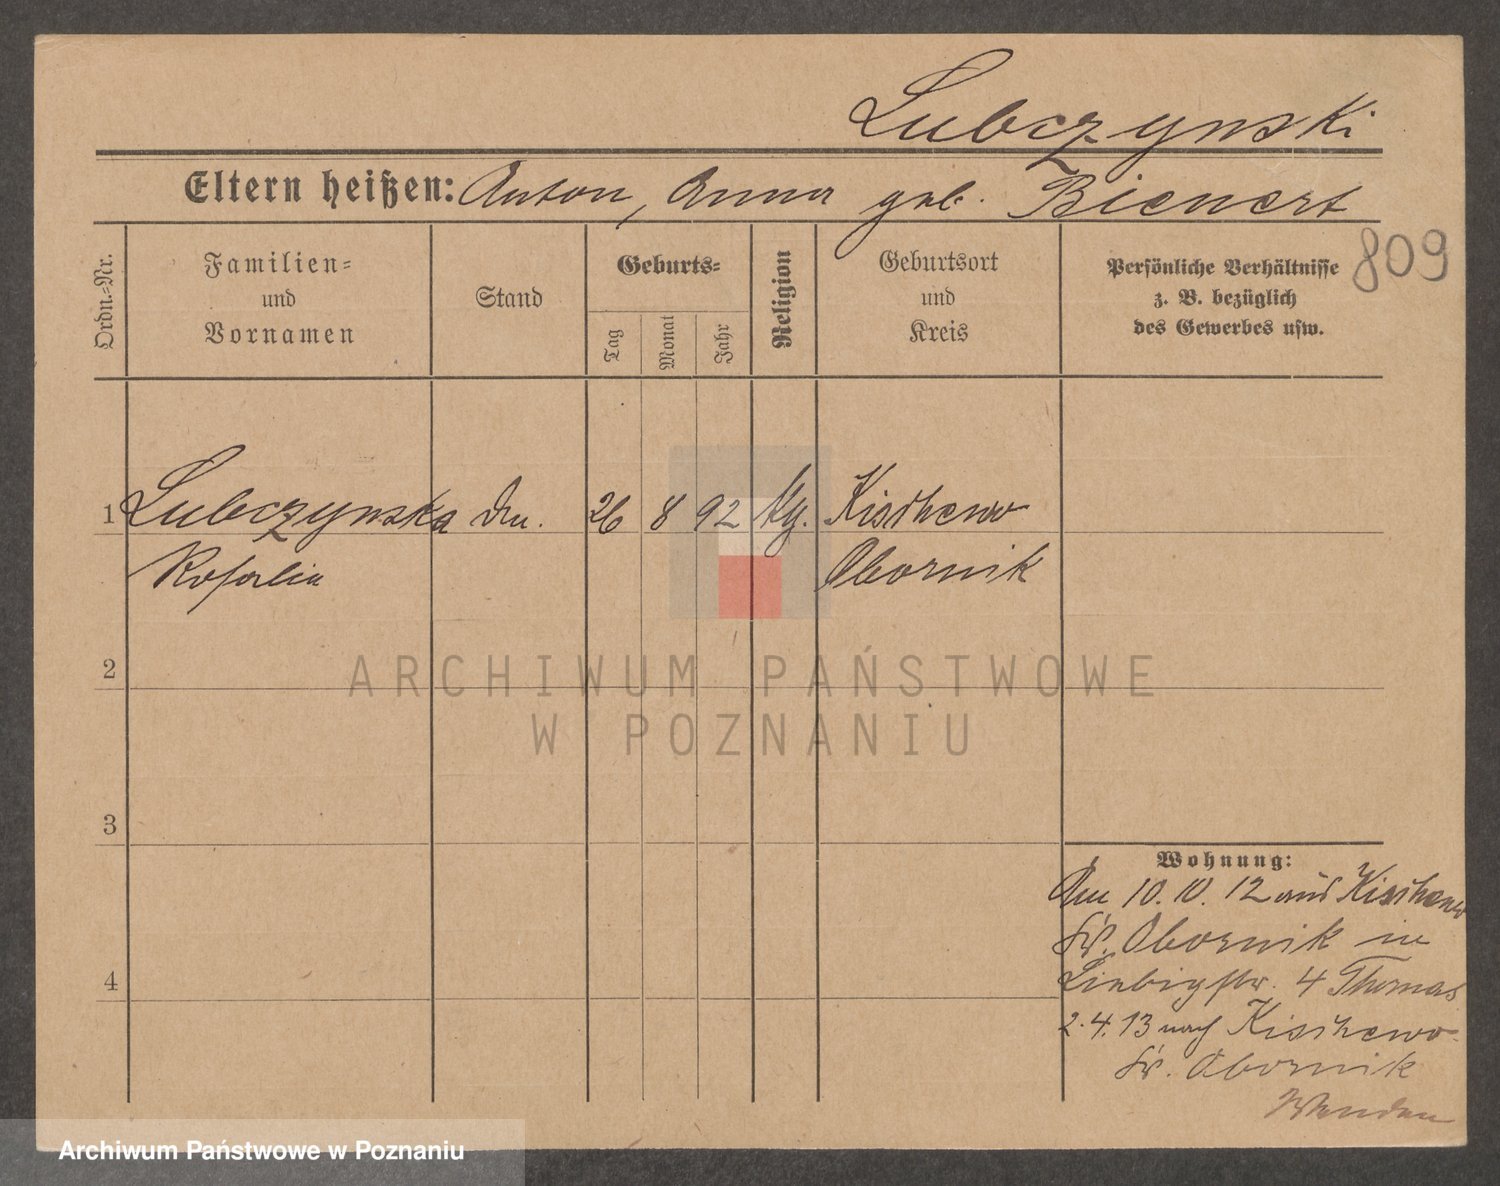 Lubczynski
Eltern heißen: Anton, Anna geb. Bienert
809
Ordn.-Nr.
Familien-
und
Vornamen
Stand
Geburts-
Tag
Monat
Jahr
Religion
Geburtsort
und
Kreis
Persönliche Verhältnisse
z. B. bezüglich
des Gewerbes usw.
1 Lubczynska 26 8 92 Kischewo
Rosalia Obornik
2
ARCHIWUM PAŃSTWOWE
W POZNANIU
3
Wohnung:
10. 10. 12 aus Kischewo
Kr. Obornik in
Liebigstr. 4 Thomas
4
2. 4. 13 nach Kischewo
Kr. Obornik
Archiwum Państwowe w Poznaniu